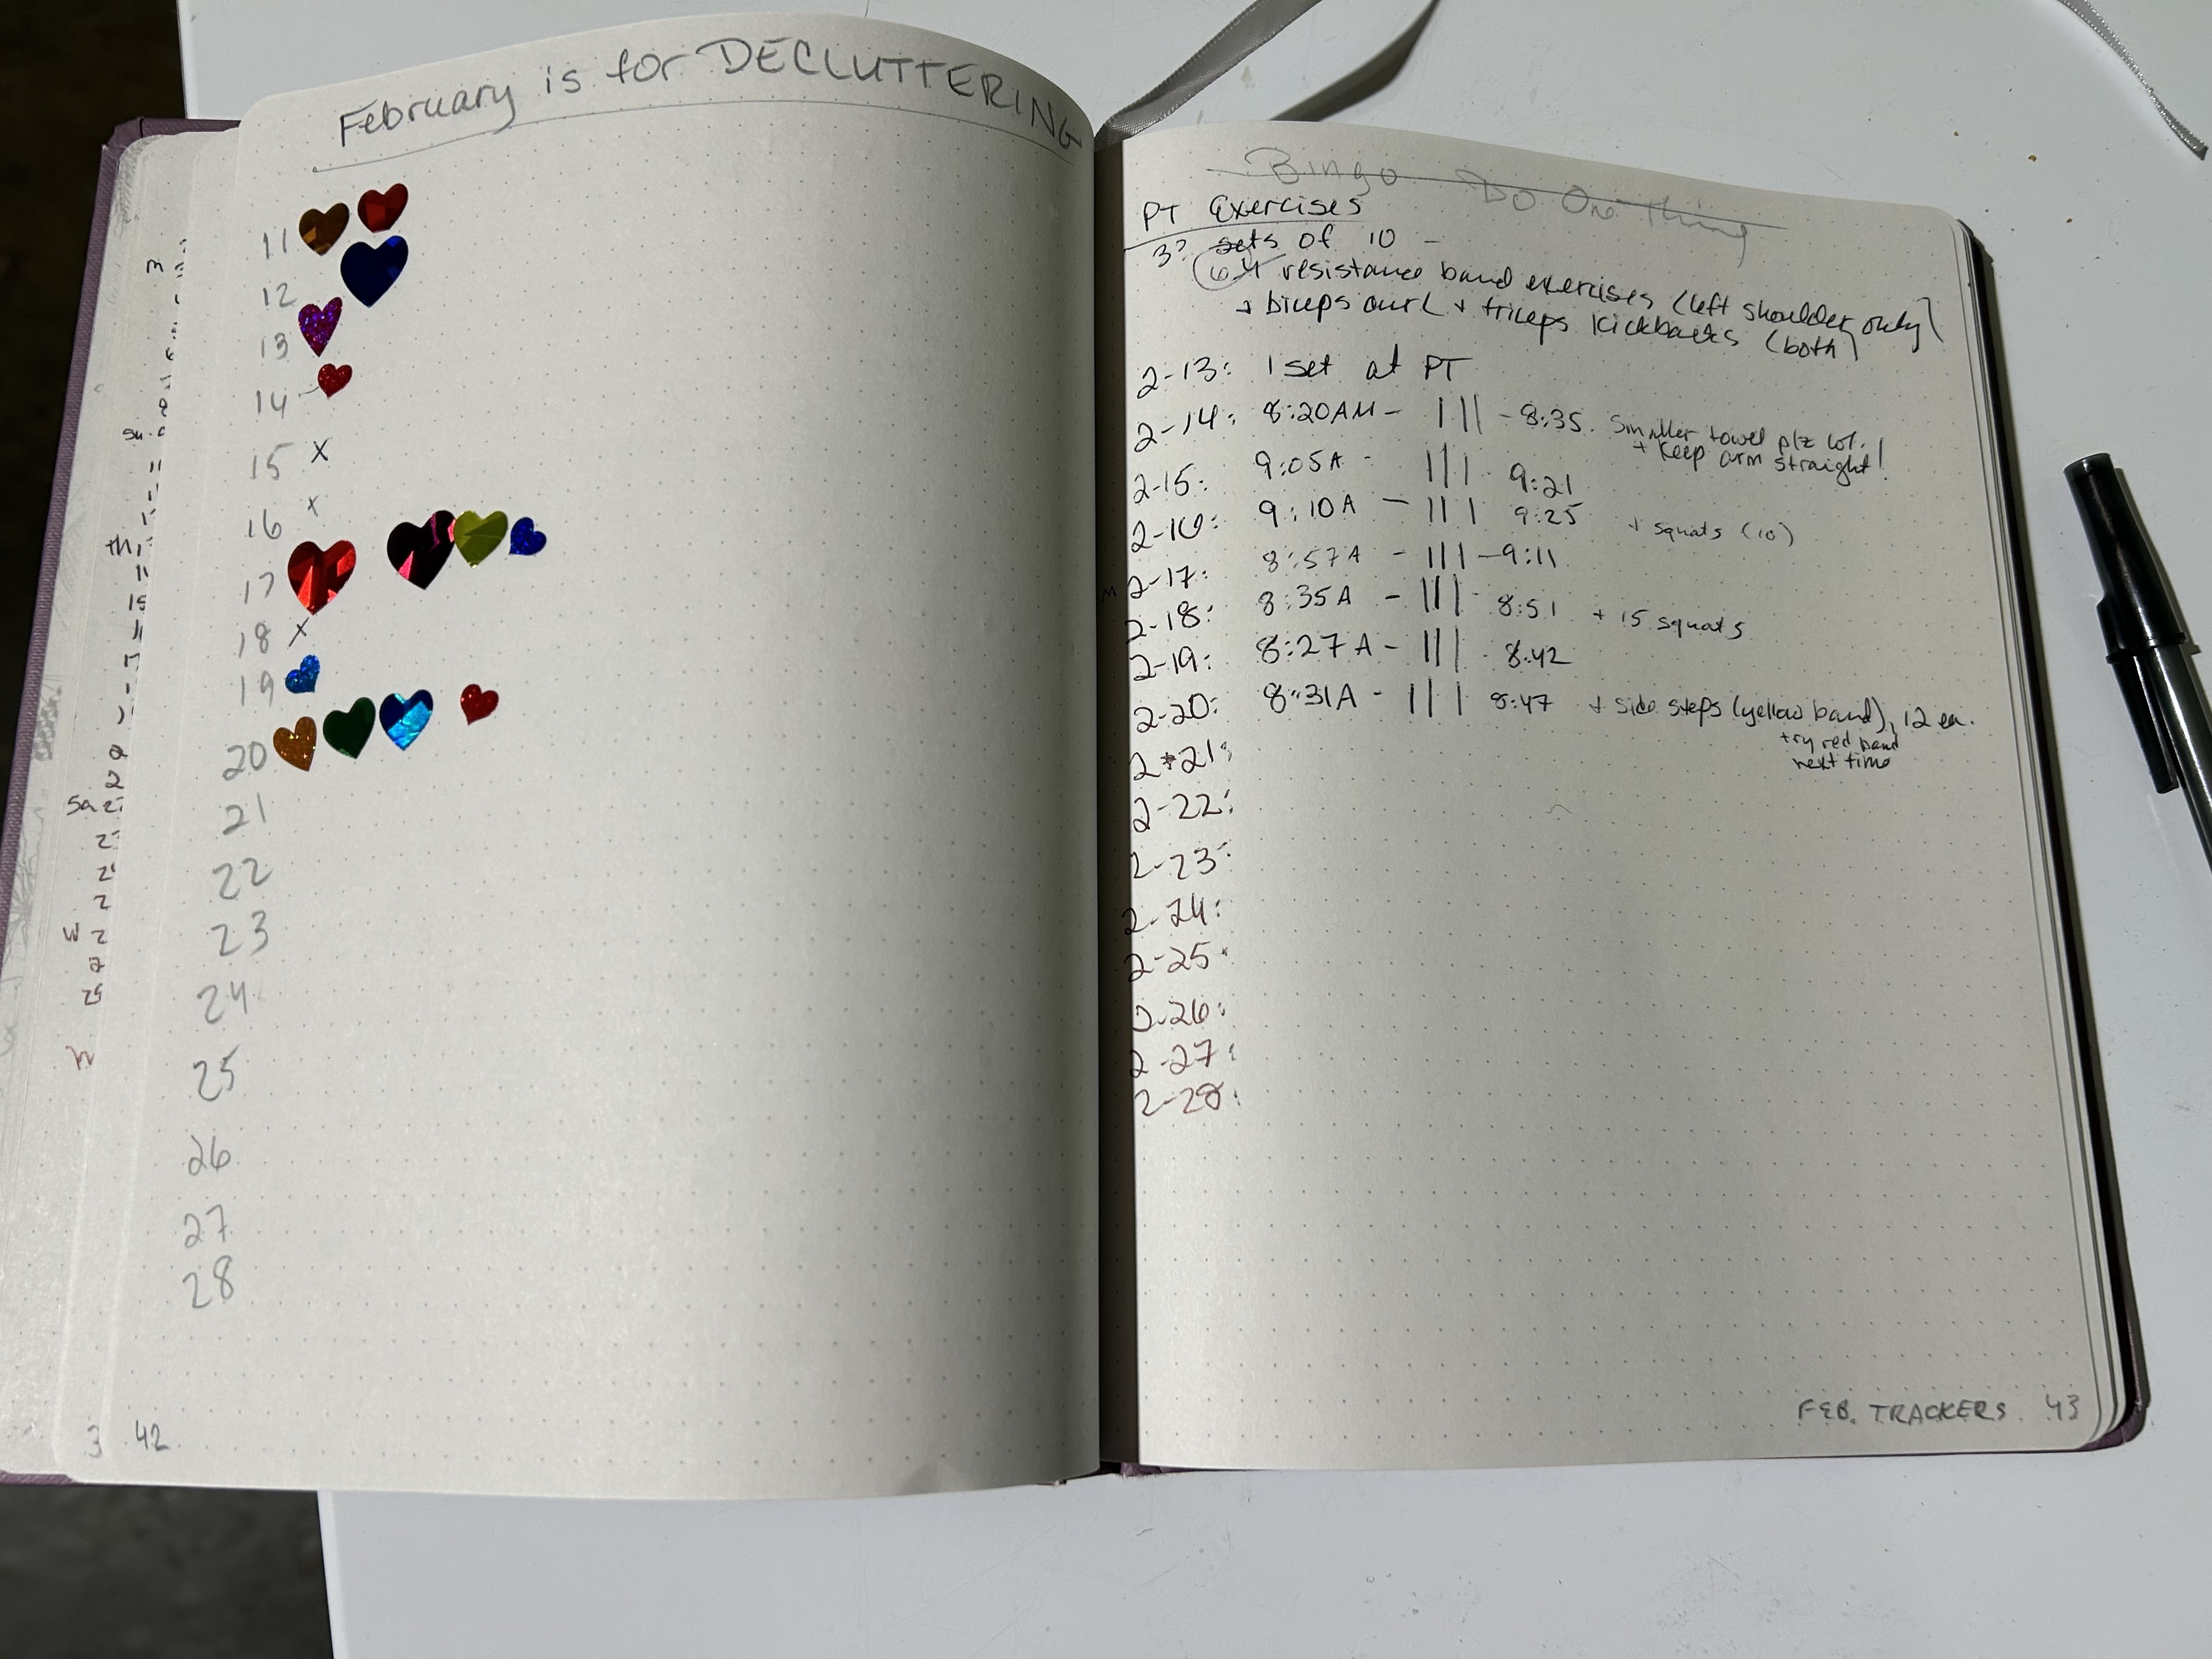 February is for DECLUTTERING
11
12
13
14
15 x
16 x
17
18 x
19
20
21
22
23
24
25
26
27
28
3 42
Bingo Do One Thing
PT Exercises
3? sets of 10 -
6 4 resistance band exercises (left shoulder only)
+ biceps curl + triceps kickbacks (both)
2-13: 1 set at PT
2-14: 8:20AM - ||| - 8:35. Smaller towel plz lol!
+ Keep arm straight!
2-15: 9:05A - ||| 9:21
2-16: 9:10A - ||| 9:25 + squats (10)
M 2-17: 8:57A - ||| - 9:11
2-18: 8:35A - ||| - 8:51 + 15 squats
2-19: 8:27A - ||| - 8:42
2-20: 8:31A - ||| 8:47 + side steps (yellow band), 12 ea.
try red band
next time
2-21:
2-22:
2-23:
2-24:
2-25:
2-26:
2-27:
2-28:
FEB. TRACKERS 43
m
Su
th
Sa
W